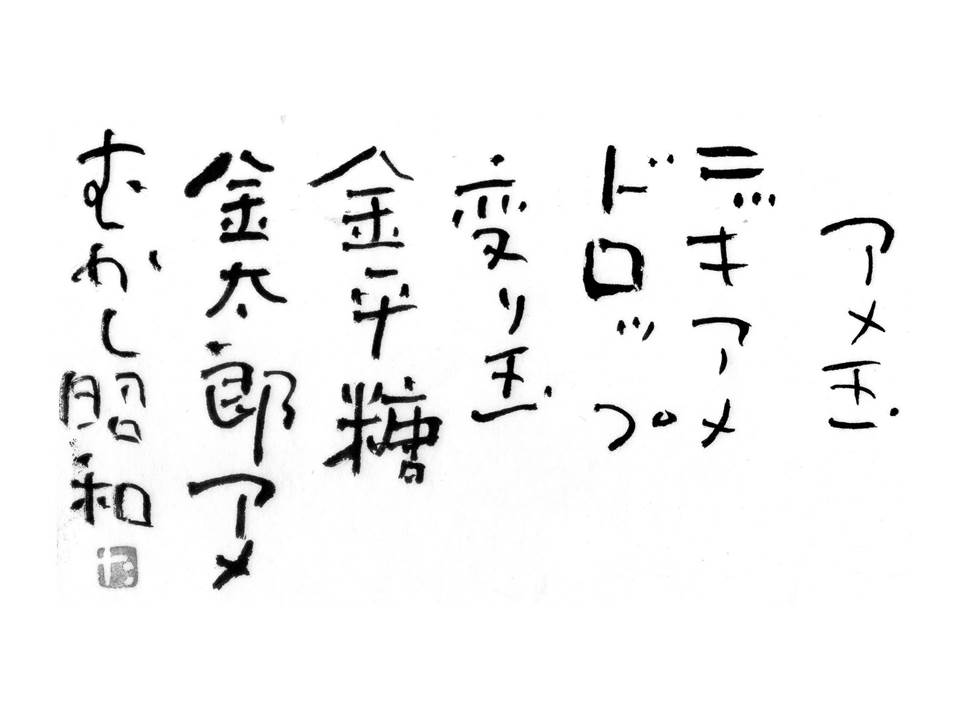 アメ玉
ニッキアメ
ドロップ
変り玉
金平糖
金太郎アメ
むかし昭和